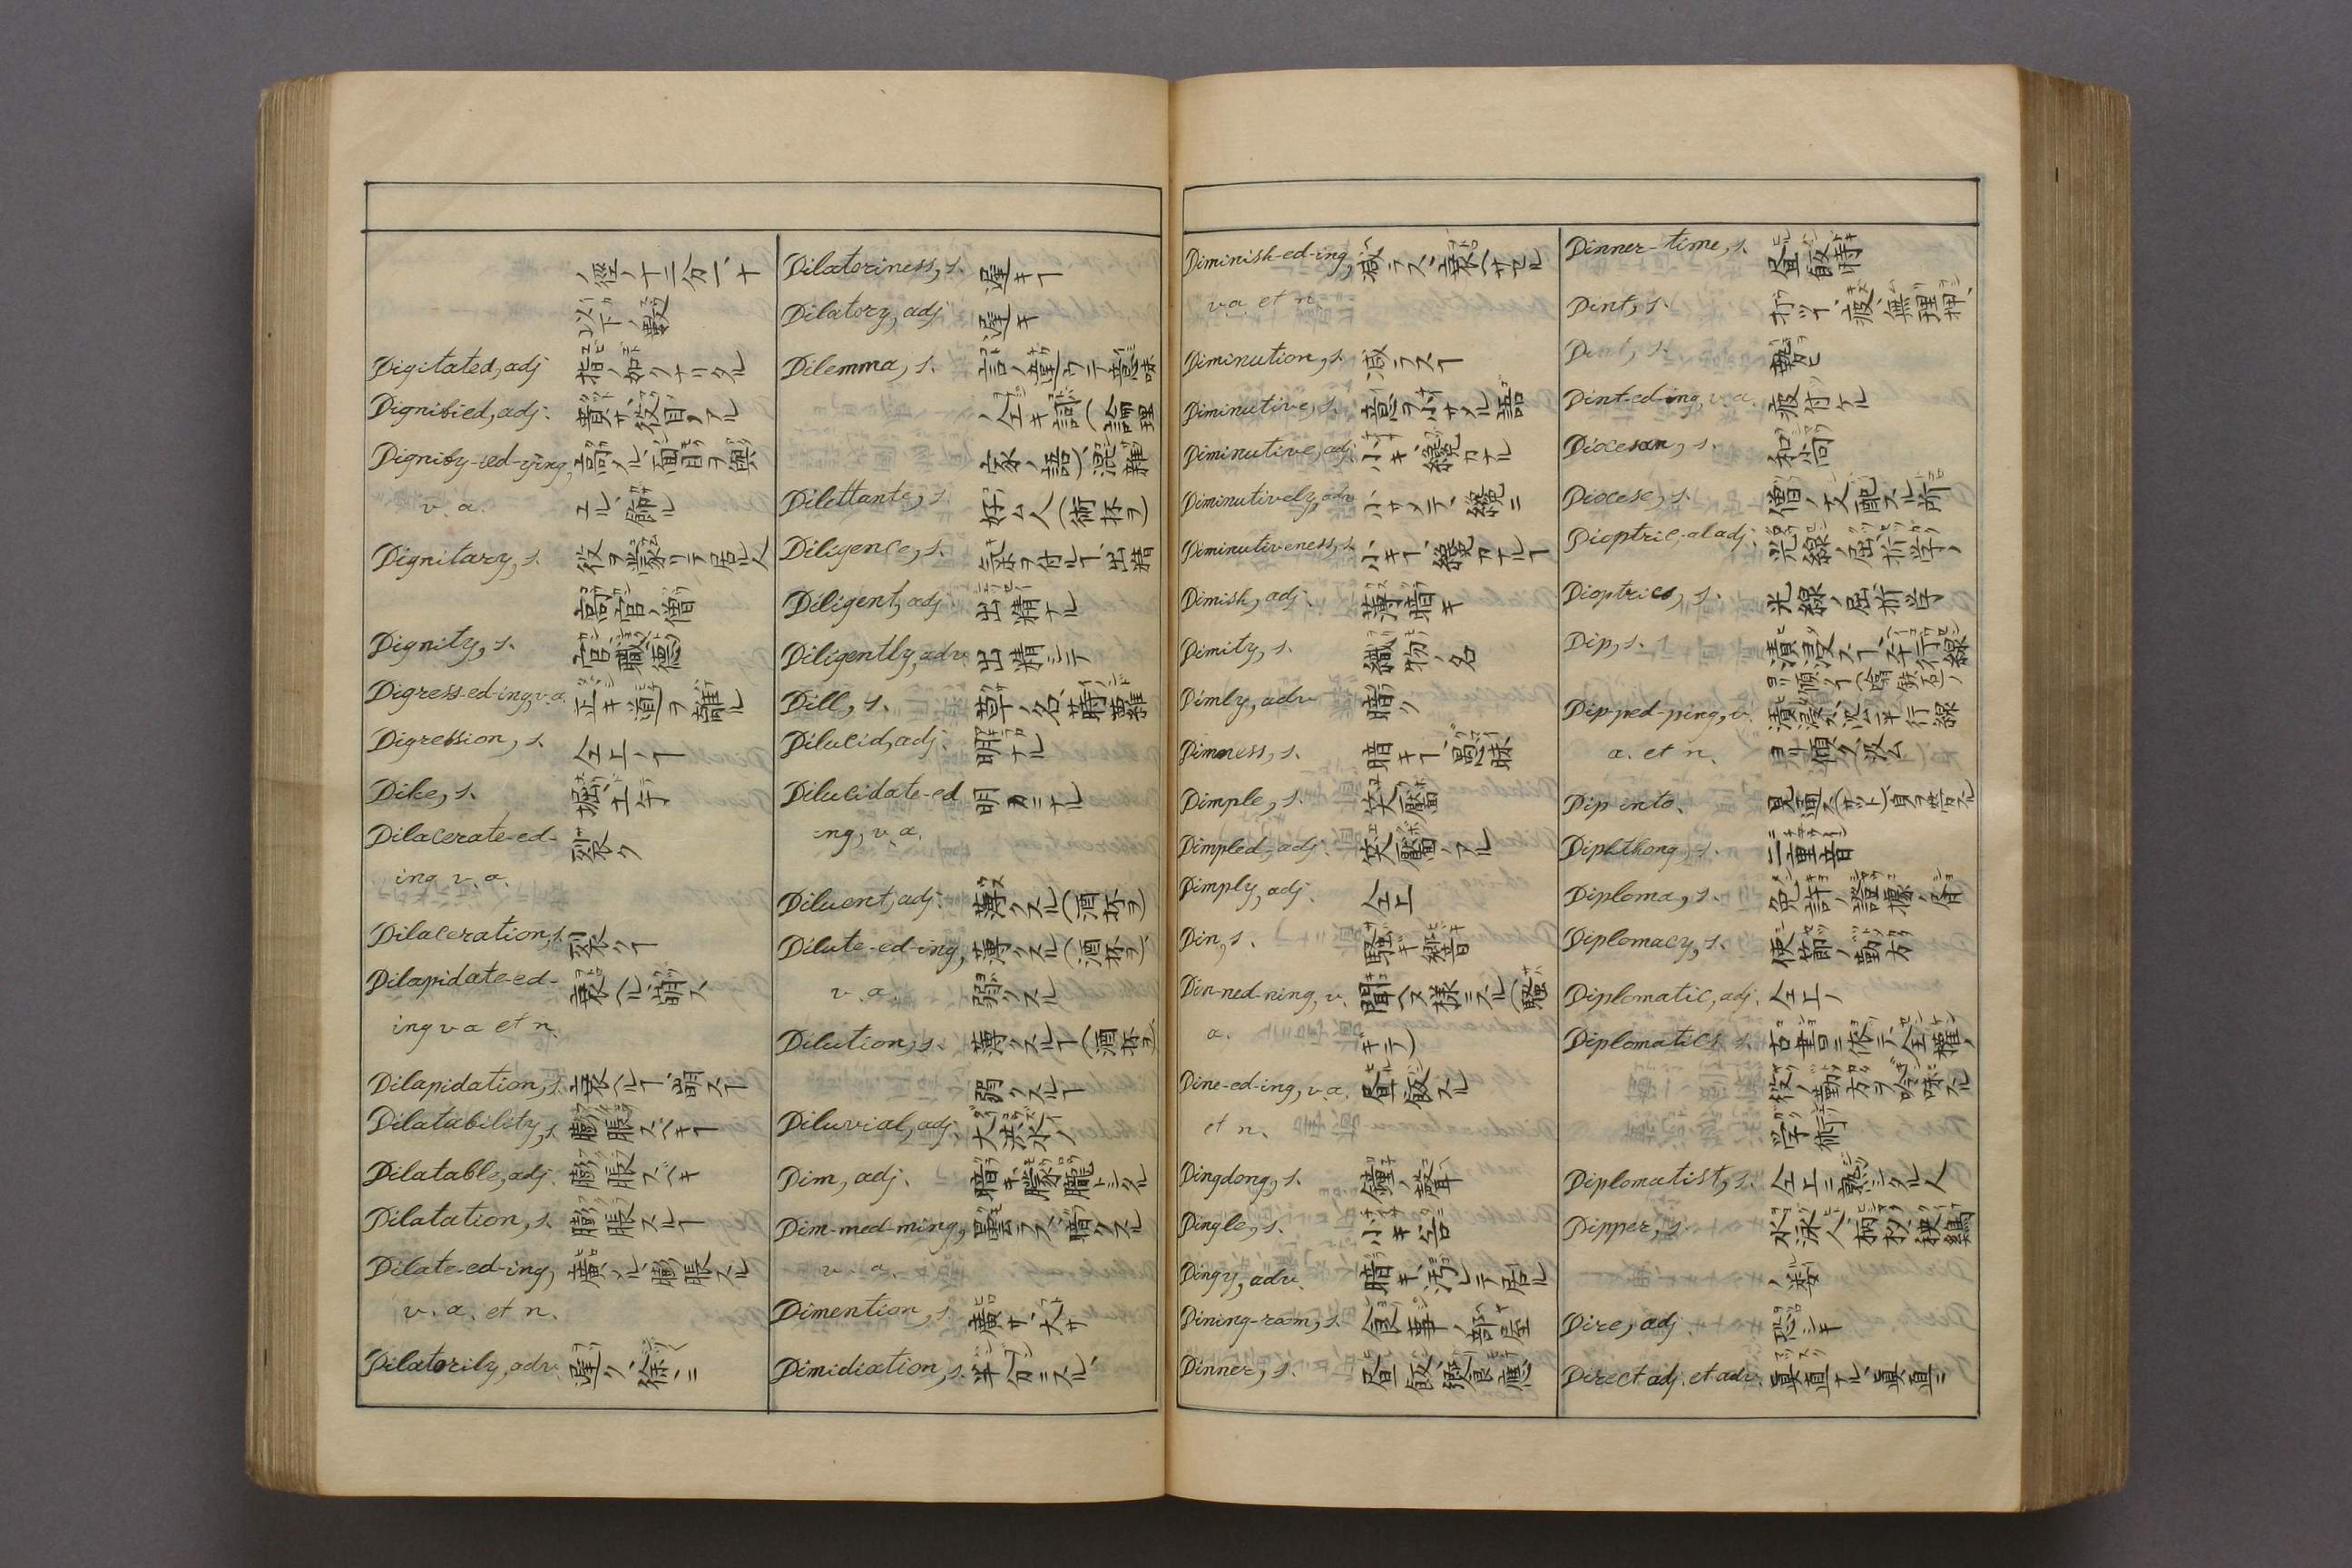 ノ徑ノ十二分一、十
以下ノ數
Digitated, adj. 指ノ如クナリタル
Dignified, adj. 貴サ、役目ノアル
Dignify-ied-ying, 高クスル、面目ヲ與
v. a. エル、飾ル
Dignitary, s. 役ヲ蒙リテ居ル人
高官ノ僧
Dignity, s. 官職、德
Digress-ed-ing, v.a. 正キ道ヲ離ル
Digression, s. 仝上ノヿ
Dike, s. 堀、土手
Dilacerate-ed- 裂ク
ing v. a.
Dilaceration, s. 裂クヿ
Dilapidate-ed- 衰ヘル、崩ス
ing v a et n.
Dilapidation, s. 衰ヘルヿ、崩スヿ
Dilatability, s. 膨脹スベキヿ
Dilatable, adj. 膨脹スベキ
Dilatation, s. 膨脹スルヿ
Dilate-ed-ing, 廣クル、膨脹スル
v. a. et n.
Dilatorily, adv. 遲ク、徐ニ
Dilatoriness, s. 遲キヿ
Dilatory, adj. 遲キ
Dilemma, s. 言ノ違ヲテ意味
ノ仝キ詞(論理
家ノ語)、混雜
Dilettante, s. 好ム人(術抔ヲ)
Diligence, s. 氣ヲ付ルヿ、出精
Diligent, adj. 出精ナル
Diligently, adv. 出精シテ
Dill, s. 草ノ名、蒔蘿
Dilucid, adj. 明ナル
Dilucidate-ed 明カニナル
ing, v. a.
Diluent, adj. 薄クスル(酒抔ヲ)
Dilute-ed-ing, 薄クスル(酒抔ヲ)
v. a. 弱クスル
Dilution, s. 薄クスルヿ(酒抔ヲ)
弱クスルヿ
Diluvial, adj. 大洪水ノ
Dim, adj. 暗キ、朦朧トシタル
Dim-med-ming, 曇ラス、暗クスル
v. a.
Dimention, s. 廣サ、大サ
Dimidiation, s. 半分ニスルヿ
Diminish-ed-ing, 減ラス、衰ヘサセル
v.a. et n.
Diminution, s. 減ラスヿ
Diminutive, s. 意ヲ小サクスル語
Diminutive, adj. 小キ、纔カナル
Diminutively, adv. 小サクテ、纔ニ
Diminutiveness, s. 小キヿ、纔カナルヿ
Dimish, adj. 薄暗キ
Dimity, s. 織物ノ名
Dimly, adv. 暗ク
Dimness, s. 暗キヿ、愚昧
Dimple, s. 笑靨
Dimpled, adj. 笑靨ノアル
Dimply, adj. 仝上
Din, s. 騷キ響音
Din-ned-ning, v. 聞ヘヌ樣ニスル(騷
a. キテ)
Dine-ed-ing, v.a. 昼飯スル
et n.
Dingdong, s. 鐘ノ聲
Dingle, s. 小キ谷
Dingy, adv. 暗キ、汚レテ居ル
Dining-room, s. 食事ノ部屋
Dinner, s. 昼飯、饗應
Dinner-time, s. 昼飯時
Dint, s. 打ツヿ、疲、無理押、
勢ヒ
Dint-ed-ing, v. a. 疲付ケル
Diocesan, s. 和尚
Diocese, s. 僧ノ支配スル所
Dioptric,-al adj. 光線ノ屈折学ノ
Dioptrics, s. 光線ノ屈折学
Dip, s. 漬浸スヿ、平行線
ヨリ傾クヿ
Dip-ped-ping, v. 漬浸ス、沈ム、平行線
a. et n. ヨリ傾ク、汲ム
Dip into.
Diphthong, s. 二重音
Diploma, s. 免許ノ證據ノ書
Diplomacy, s. 使節ノ勤方
Diplomatic, adj. 仝上ノ
Diplomatics, s. 古書ニ依テ、全權ノ
役ノ勤方ヲ吟味スル
学術
Diplomatist, s. 仝上ニ熟シタル人
Dipper, s. 水泳人、柄杓
Dire, adj. 恐シキ
Direct adj. et adv. 眞直ナル、眞直ニ